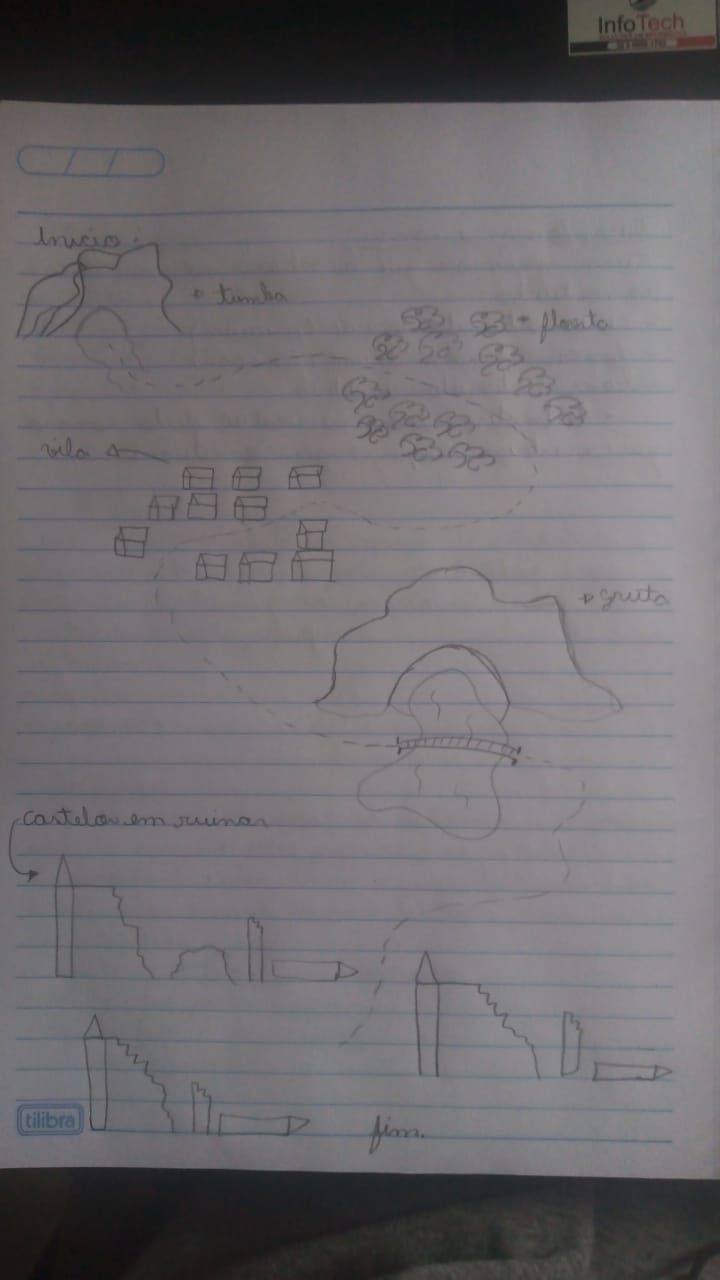 InfoTech
Inicio:
tumba
planta
vila
gruta
castelos em ruinas
tilibra
fim.